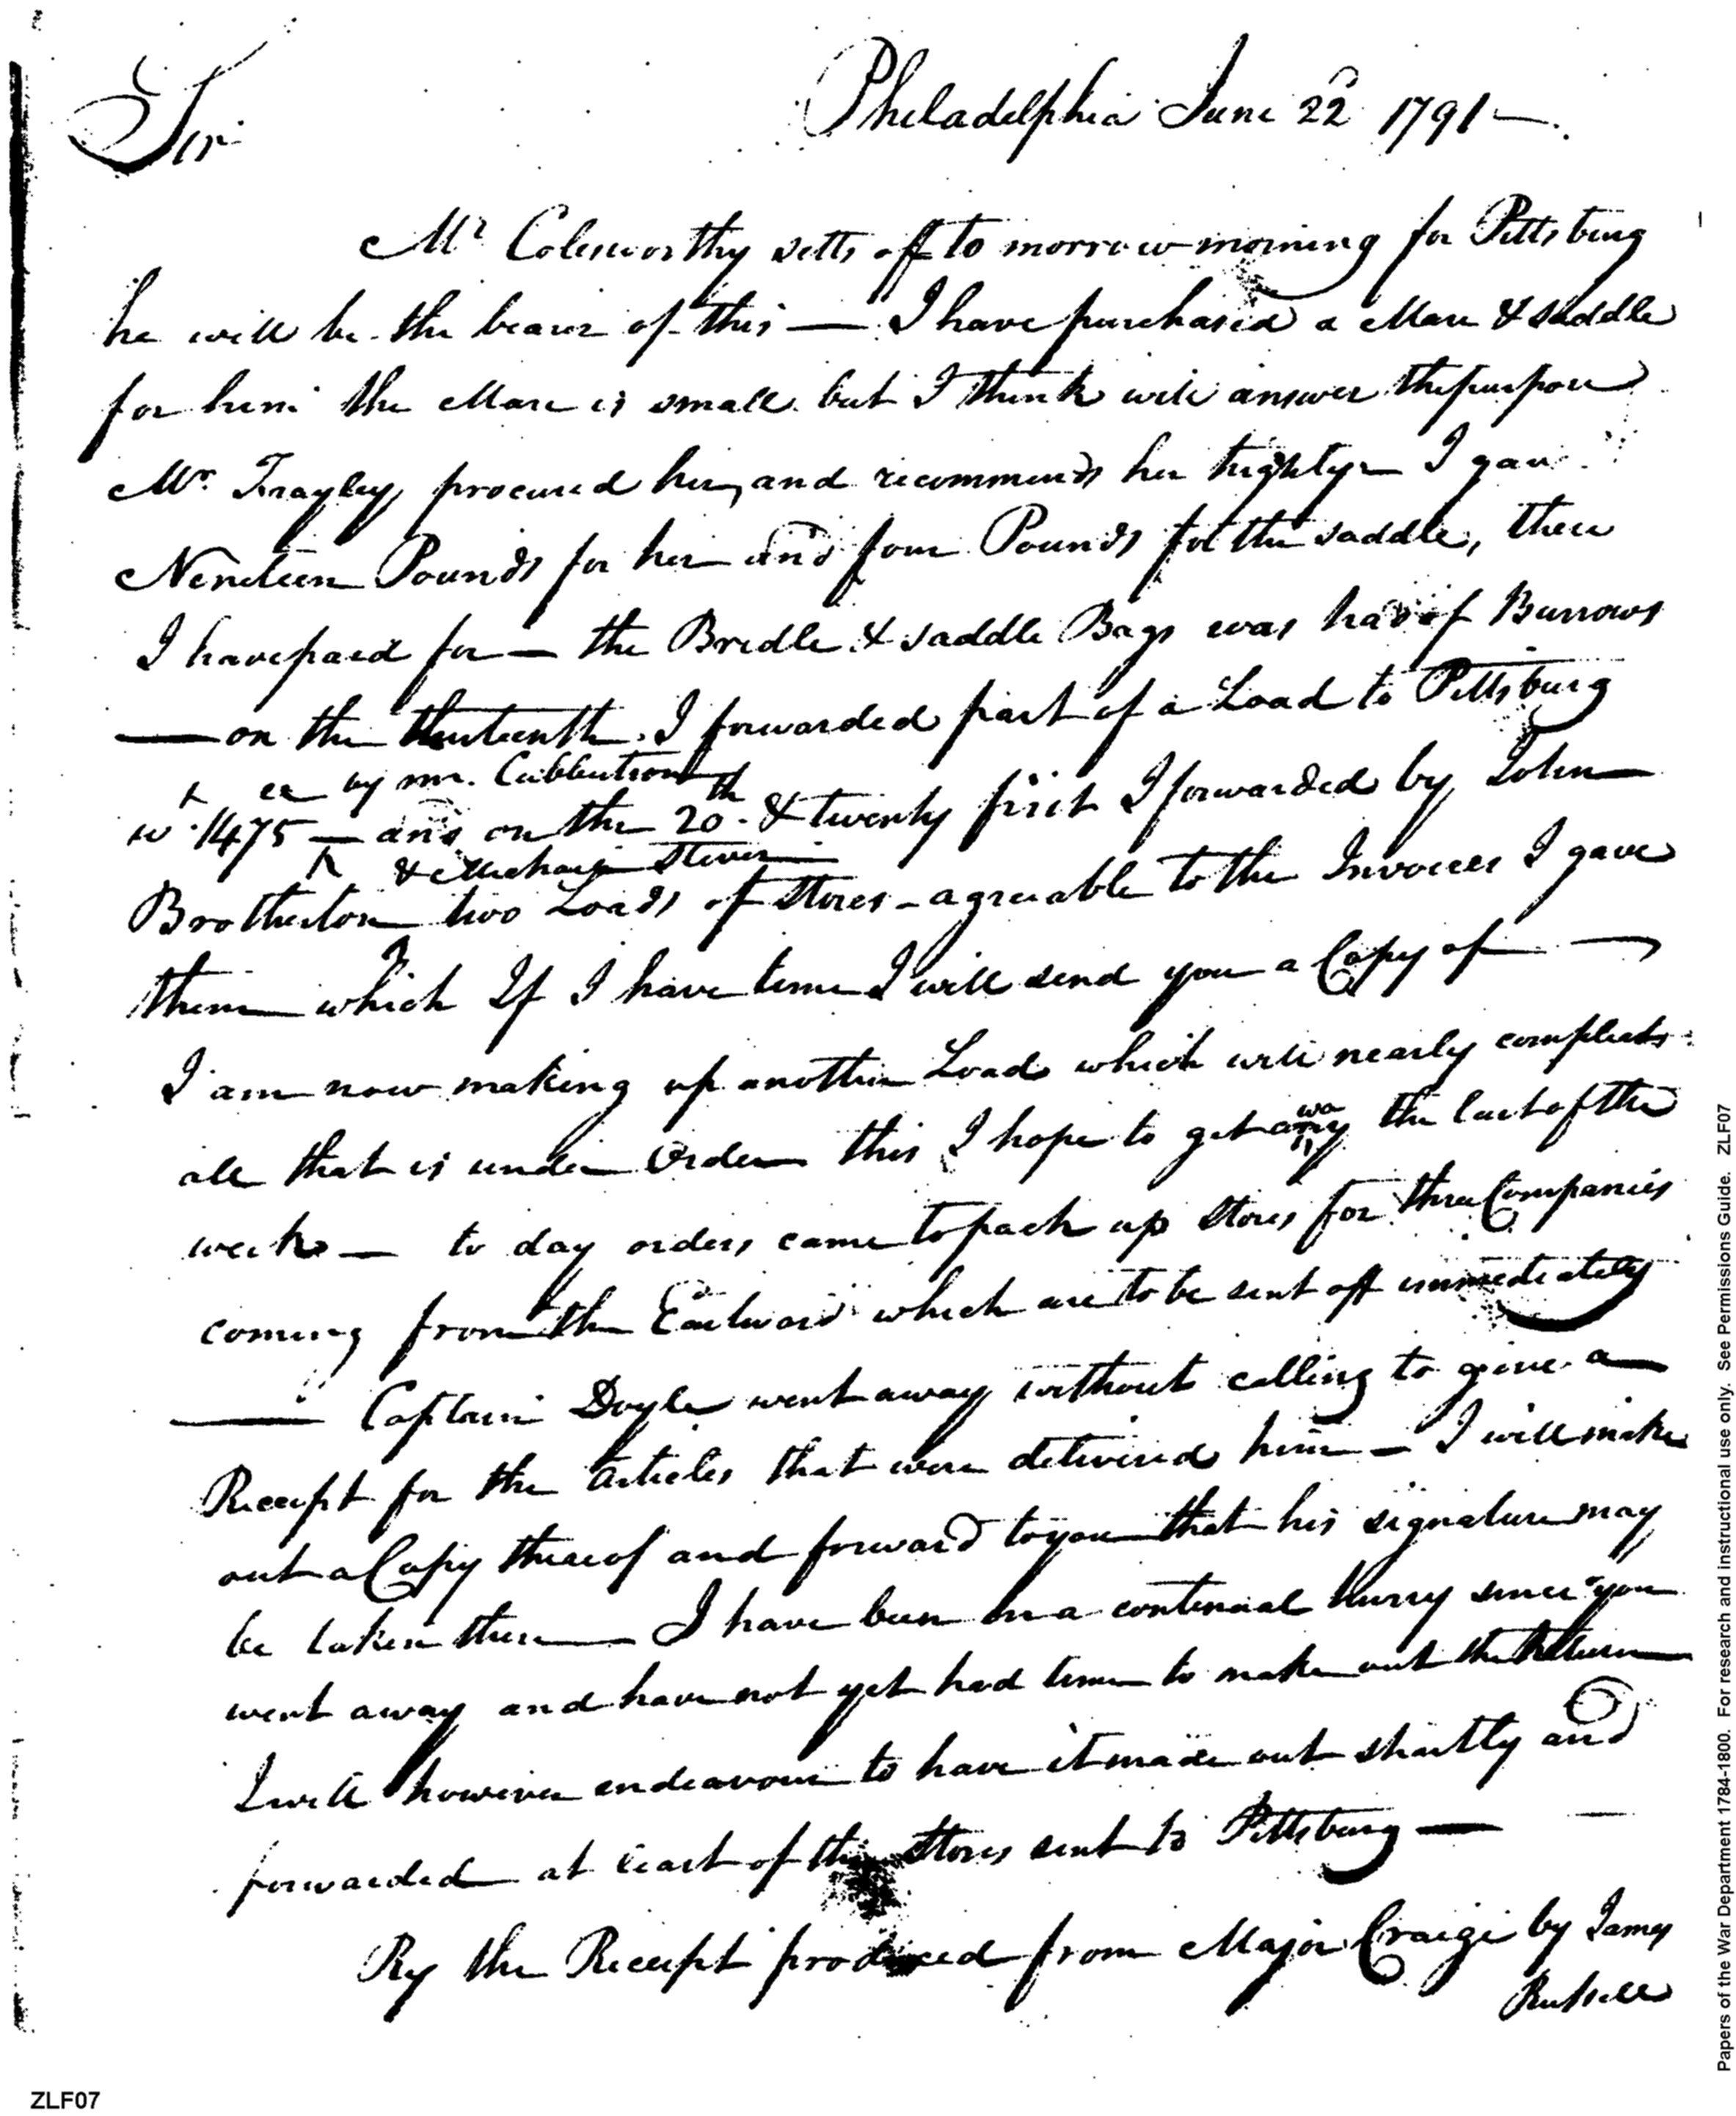 Sir
Philadelphia June 22d 1791 —
Mr Colesworthy setts off to morrow morning for Pittsburg
he will be the bearer of this — I have purchased a Mare & saddle
for him the Mare is small but I think will answer the purpose
Mr. Frayley procured her, and recommends her highly — I gave
Nineteen Pounds for her and four Pounds for the saddle, these
I have paid for — the Bridle & saddle Bags was had of Burrows
— on the thirteenth I forwarded part of a Load to Pittsburg
by mr. Cubbutson
w. 1475 — and on the 20th & twenty first I forwarded by John
& Michael Stever
Brotherton two Loads of Stores - agreeable to the Invoices I gave
them which If I have time I will send you a Copy of —
I am now making up another Load which will nearly compleat
all that is under Order this I hope to get away the last of the
week — to day orders came to pack up Stores for three Companies
coming from the Eastward which are to be sent off immediately
— Captain Doyle went away without calling to give a
Receipt for the Articles that were delivered him — I will make
out a Copy thereof and forward to you that his signature may
be taken there — I have been in a continual hurry since you
went away and have not yet had time to make out the Return
I will however endeavour to have it made out shortly and
forwarded at least of the Stores sent to Pittsburg —
By the Receipt produced from Major Craige by James
Russell
Papers of the War Department 1784-1800. For research and instructional use only. See Permissions Guide. ZLF07
ZLF07